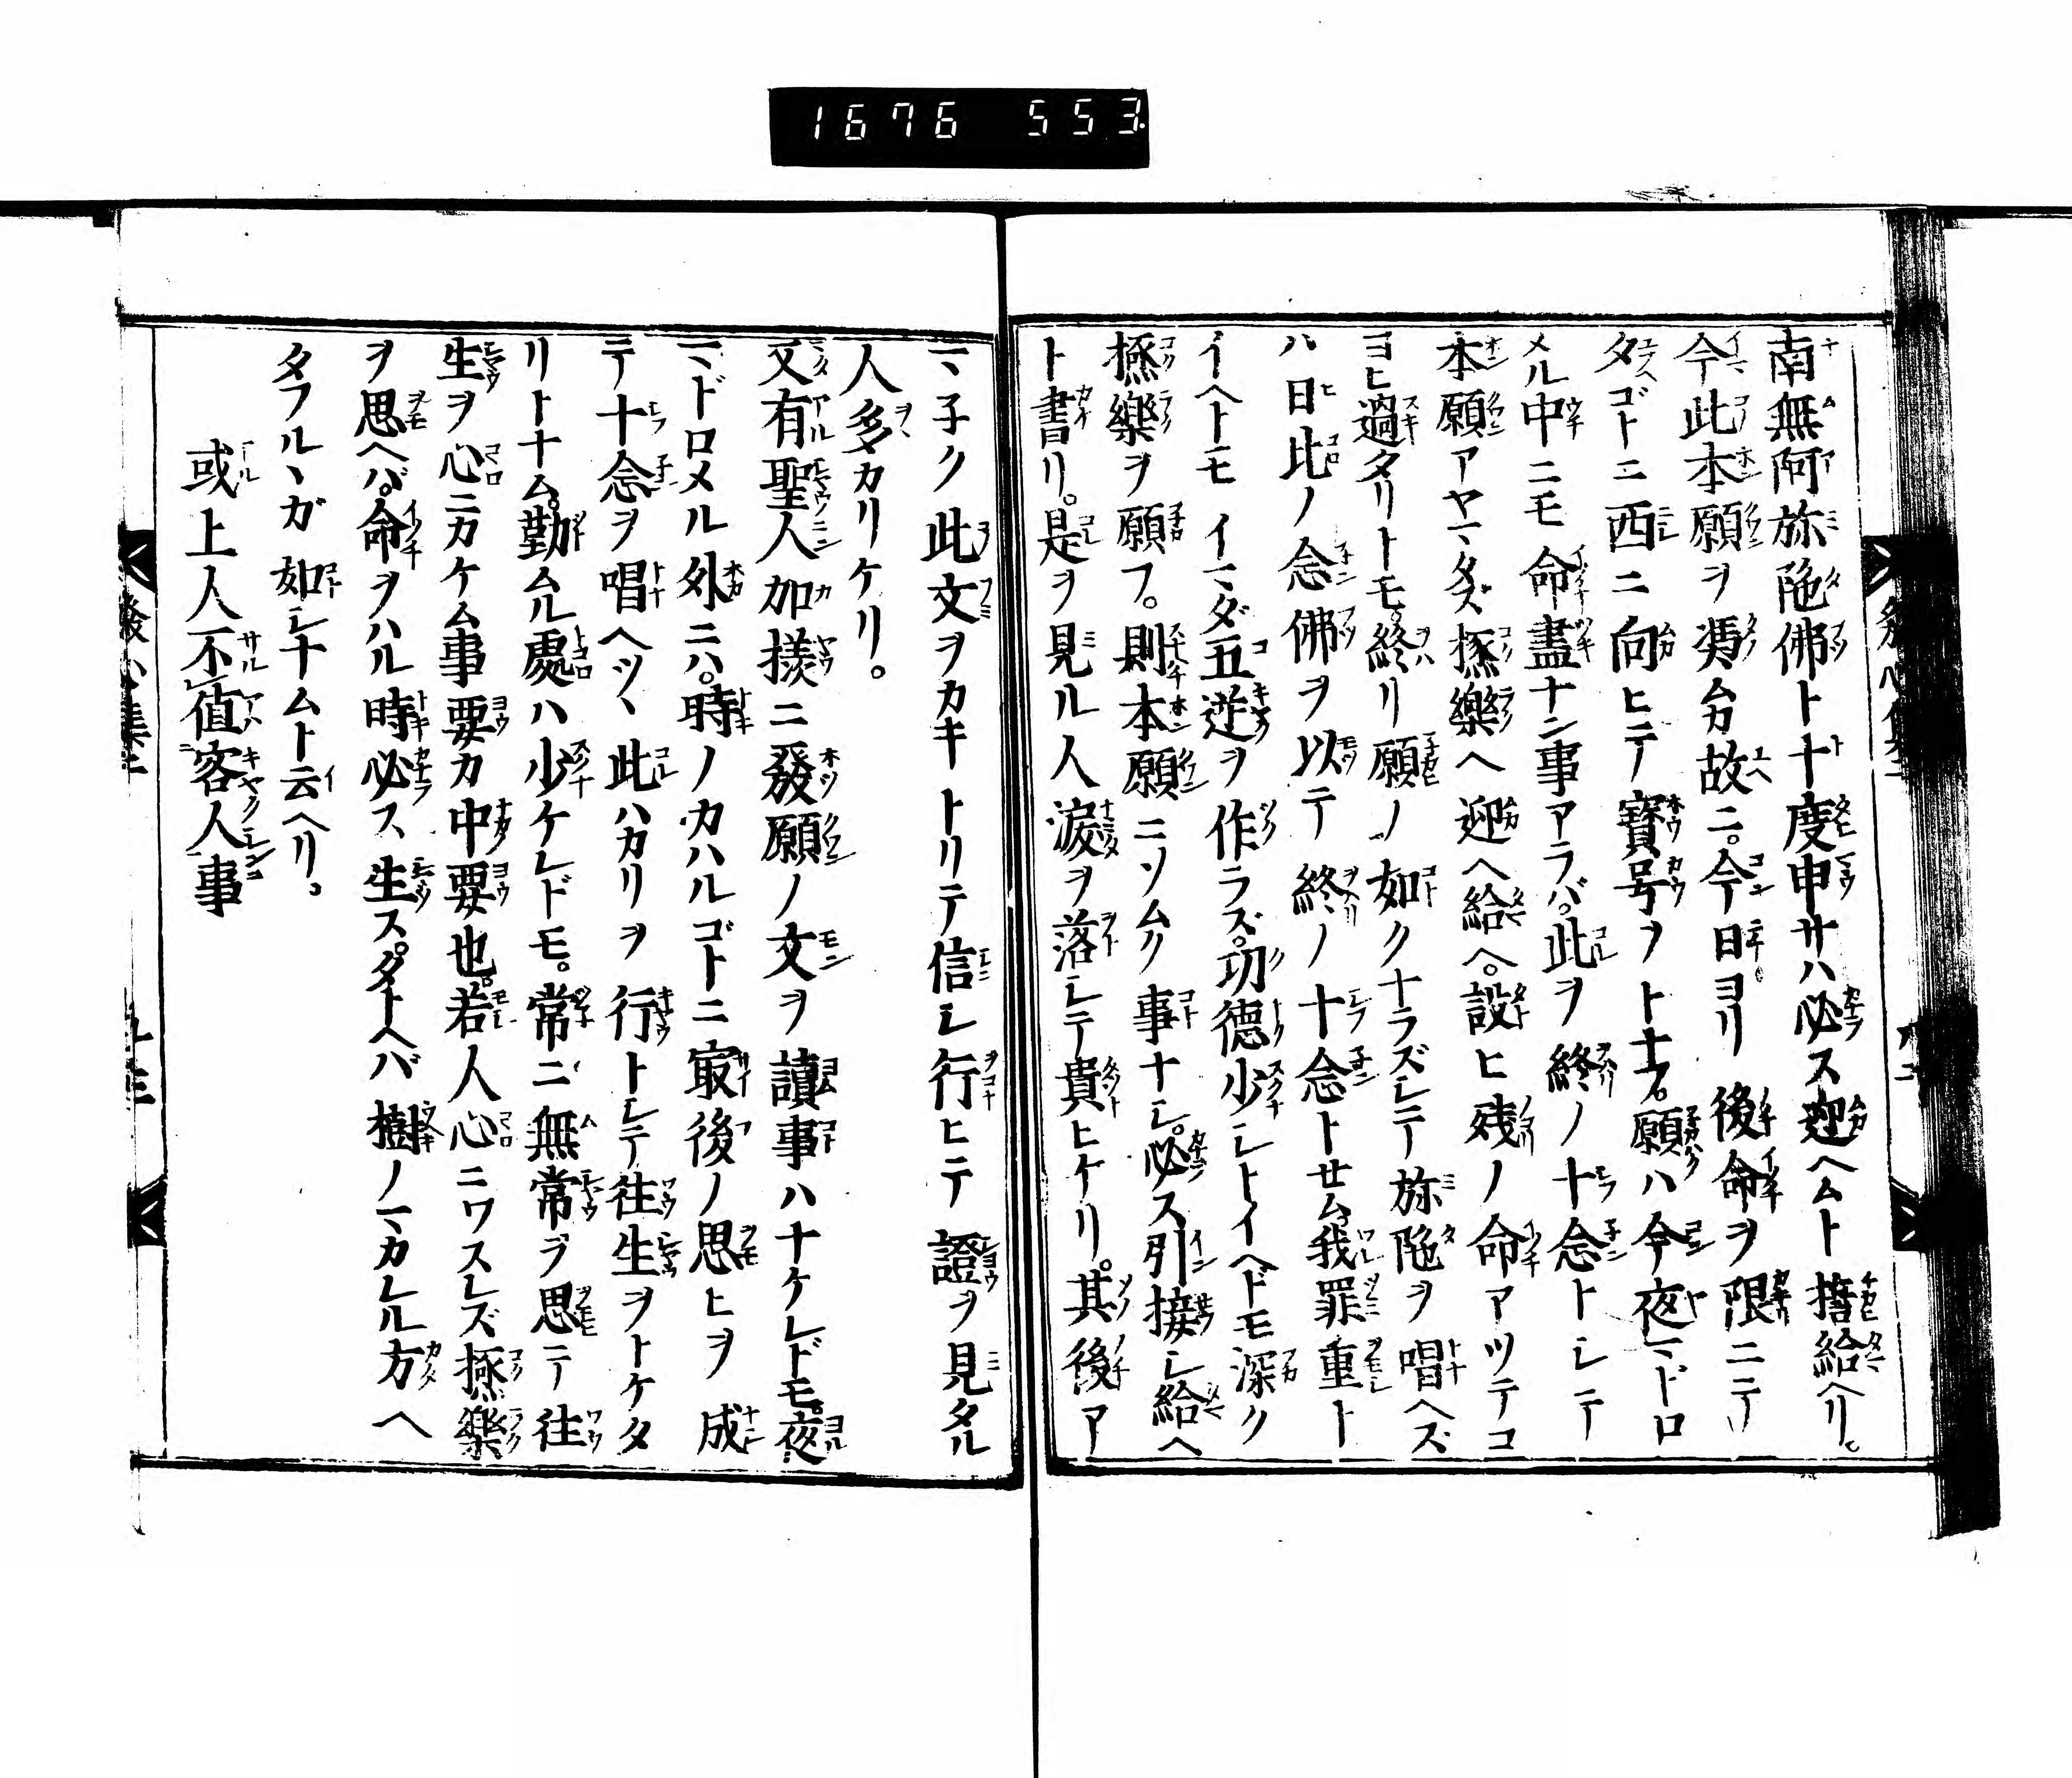 1676 553
南無阿弥陁佛ト十度申サハ必ス迎ヘムト誓給ヘリ。
今此本願ヲ馮ムカ故ニ。今日ヨリ後命ヲ限ニテ
夕ゴトニ西ニ向ヒテ寳号ヲトナフ。願ハ今夜マドロ
メル中ニモ命盡ナン事アラバ。此ヲ終ノ十念トシテ
本願アヤマタズ極樂ヘ迎ヘ給ヘ。設ヒ残ノ命アツテコ
ヨヒ過タリトモ。終リ願ノ如クナラズシテ弥陁ヲ唱ヘズ
ハ日比ノ念佛ヲ以テ終ノ十念トせム。我罪重ト
イヘトモイマダ五逆ヲ作ラズ。功德少シトイヘドモ深ク
極樂ヲ願フ。則本願ニソムク事ナシ。必ス引接シ給ヘ
ト書リ。是ヲ見ル人淚ヲ落シテ貴ヒケリ。其後ア
マ子ク此文ヲカキトリテ信シ行ヒテ證ヲ見タル
人多カリケリ。
又有聖人加樣ニ發願ノ文ヲ讀事ハナケレドモ。夜
マドロメル外ニハ。時ノカハルゴトニ㝡後ノ思ヒヲ成
テ十念ヲ唱ヘツヽ此ハカリヲ行トシテ往生ヲトケタ
リトナム。勤ムル處ハ少ケレドモ。常ニ無常ヲ思テ往
生ヲ心ニカケム事要カ中要也。若人心ニワスレズ極樂
ヲ思ヘバ。命ヲハル時必ス生ス。タトヘバ樹ノマカレル方ヘ
タフルヽガ如シナムト云ヘリ。
或上人不値客人事